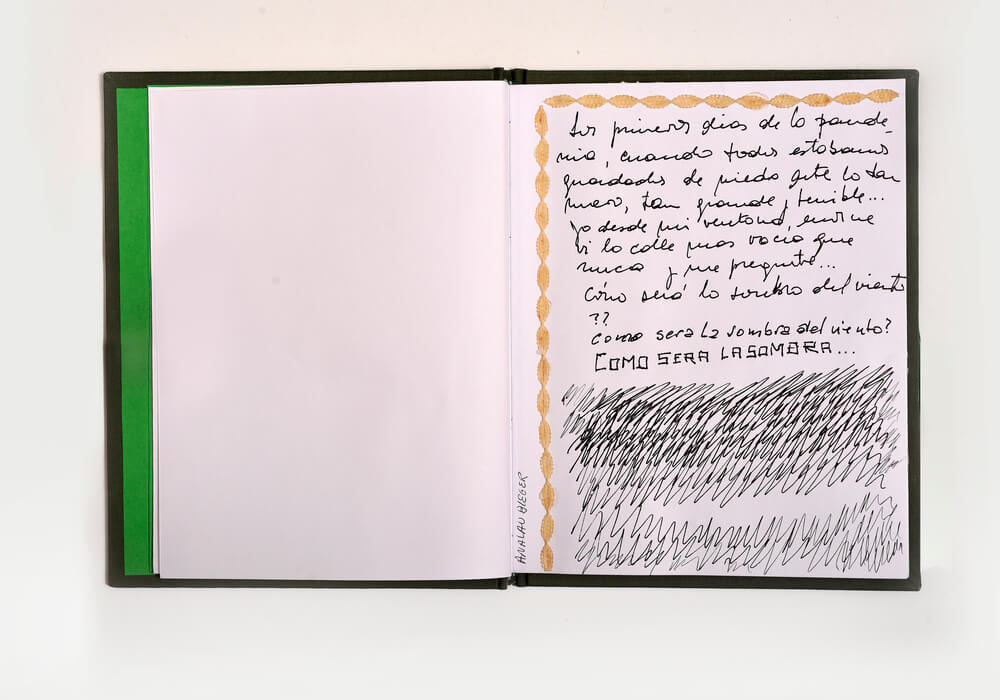 Los primeros dias de la pande-
mia, cuando todos estabamos
guardados de miedo ante lo tan
nuevo, tan grande y terrible...
yo desde mi ventana,
vi la calle mas vacia que
nunca y me pregunte...
Cómo será la sombra del viento
??
como sera la sombra del viento?
COMO SERA LA SOMBRA...